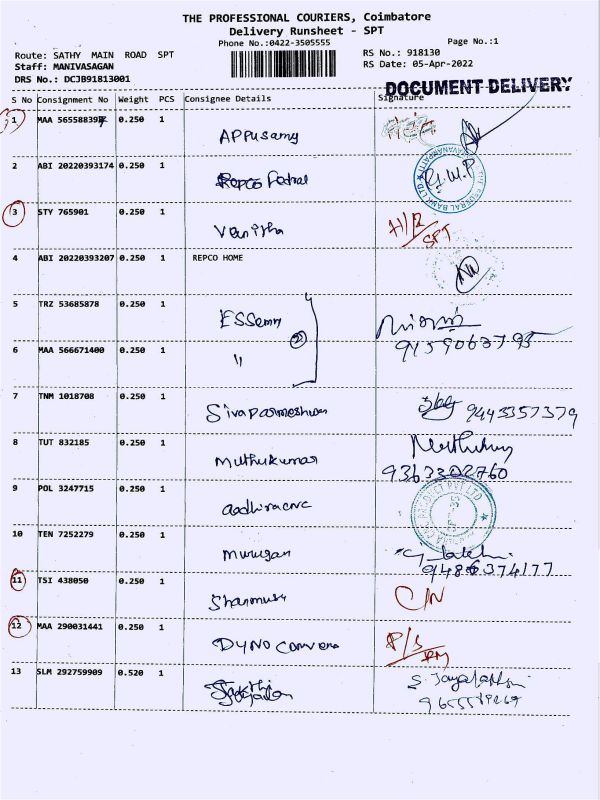 THE PROFESSIONAL COURIERS, Coimbatore
Delivery Runsheet - SPT
Phone No.:0422-3505555
Page No.:1
Route: SATHY MAIN ROAD SPT
RS No.: 918130
Staff: MANIVASAGAN
RS Date: 05-Apr-2022
DRS No.: DCJB91813001
DOCUMENT DELIVERY
S No Consignment No Weight PCS Consignee Details Signature
1 MAA 565588397 0.250 1
Appusamy
2 ABI 20220393174 0.250 1
Repco
3 STY 765901 0.250 1
Vanitha
H/R
SPT
4 ABI 20220393207 0.250 1 REPCO HOME
5 TRZ 53685878 0.250 1
ESSemm
9159063795
6 MAA 566671400 0.250 1
"
7 TNM 1018708 0.250 1
Sivaparmeshwa
9443357379
8 TUT 832185 0.250 1
Muthukumar
9363302760
9 POL 3247715 0.250 1
aadhiracnc
10 TEN 7252279 0.250 1
Murugan
9486374177
11 TSI 438050 0.250 1
Shanmuga
C/N
12 MAA 290031441 0.250 1
DYNO
P/S
13 SLM 292759909 0.520 1